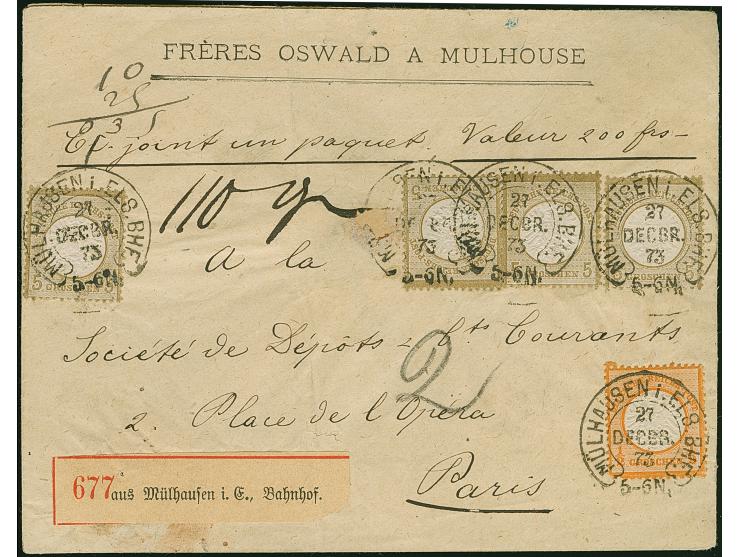 FRÈRES OSWALD A MULHOUSE
10
25
35
Ci-joint un paquet. Valeur 200 frs-
110 gr
MÜLHAUSEN i. ELS. BHF.
27
DECBR.
73
5-6N.
5 GROSCHEN 5
MÜLHAUSEN i. ELS. BHF.
27
DECBR.
73
5-6N.
MÜLHAUSEN i. ELS. BHF.
27
DECBR.
73
5-6N.
5 GROSCHEN
MÜLHAUSEN i. ELS. BHF.
27
DECBR.
73
5-6N.
GROSCHEN
A la
Société de Dépôts - Cts Courants
2
2. Place de l'Opéra
MÜLHAUSEN i. ELS. BHF.
27
DECBR.
73
5-6N.
GROSCHEN
677 aus Mülhausen i. E., Bahnhof.
Paris